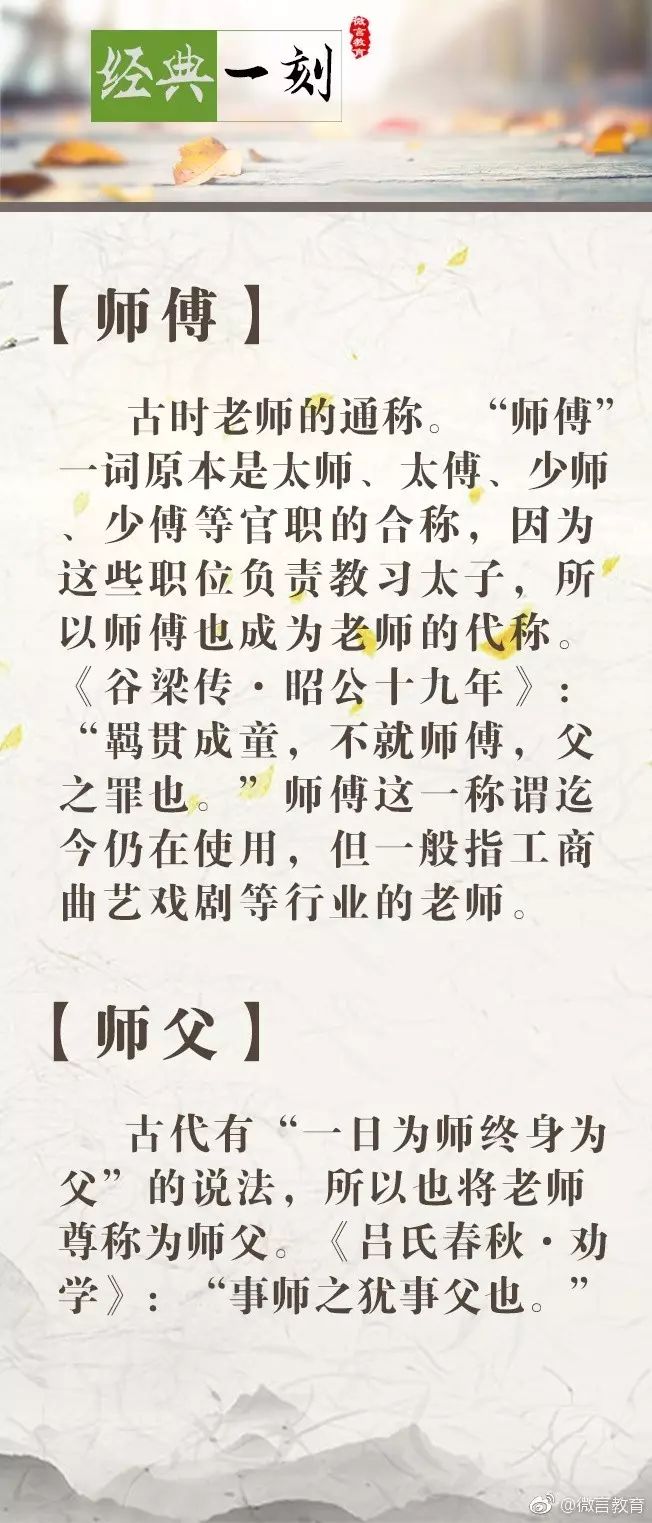 经典一刻
微言教育
【师傅】
古时老师的通称。“师傅”
一词原本是太师、太傅、少师
、少傅等官职的合称，因为
这些职位负责教习太子，所
以师傅也成为老师的代称。
《谷梁传·昭公十九年》：
“羁贯成童，不就师傅，父
之罪也。”师傅这一称谓迄
今仍在使用，但一般指工商
曲艺戏剧等行业的老师。
【师父】
古代有“一日为师终身为
父”的说法，所以也将老师
尊称为师父。《吕氏春秋·劝
学》：“事师之犹事父也。”
@微言教育